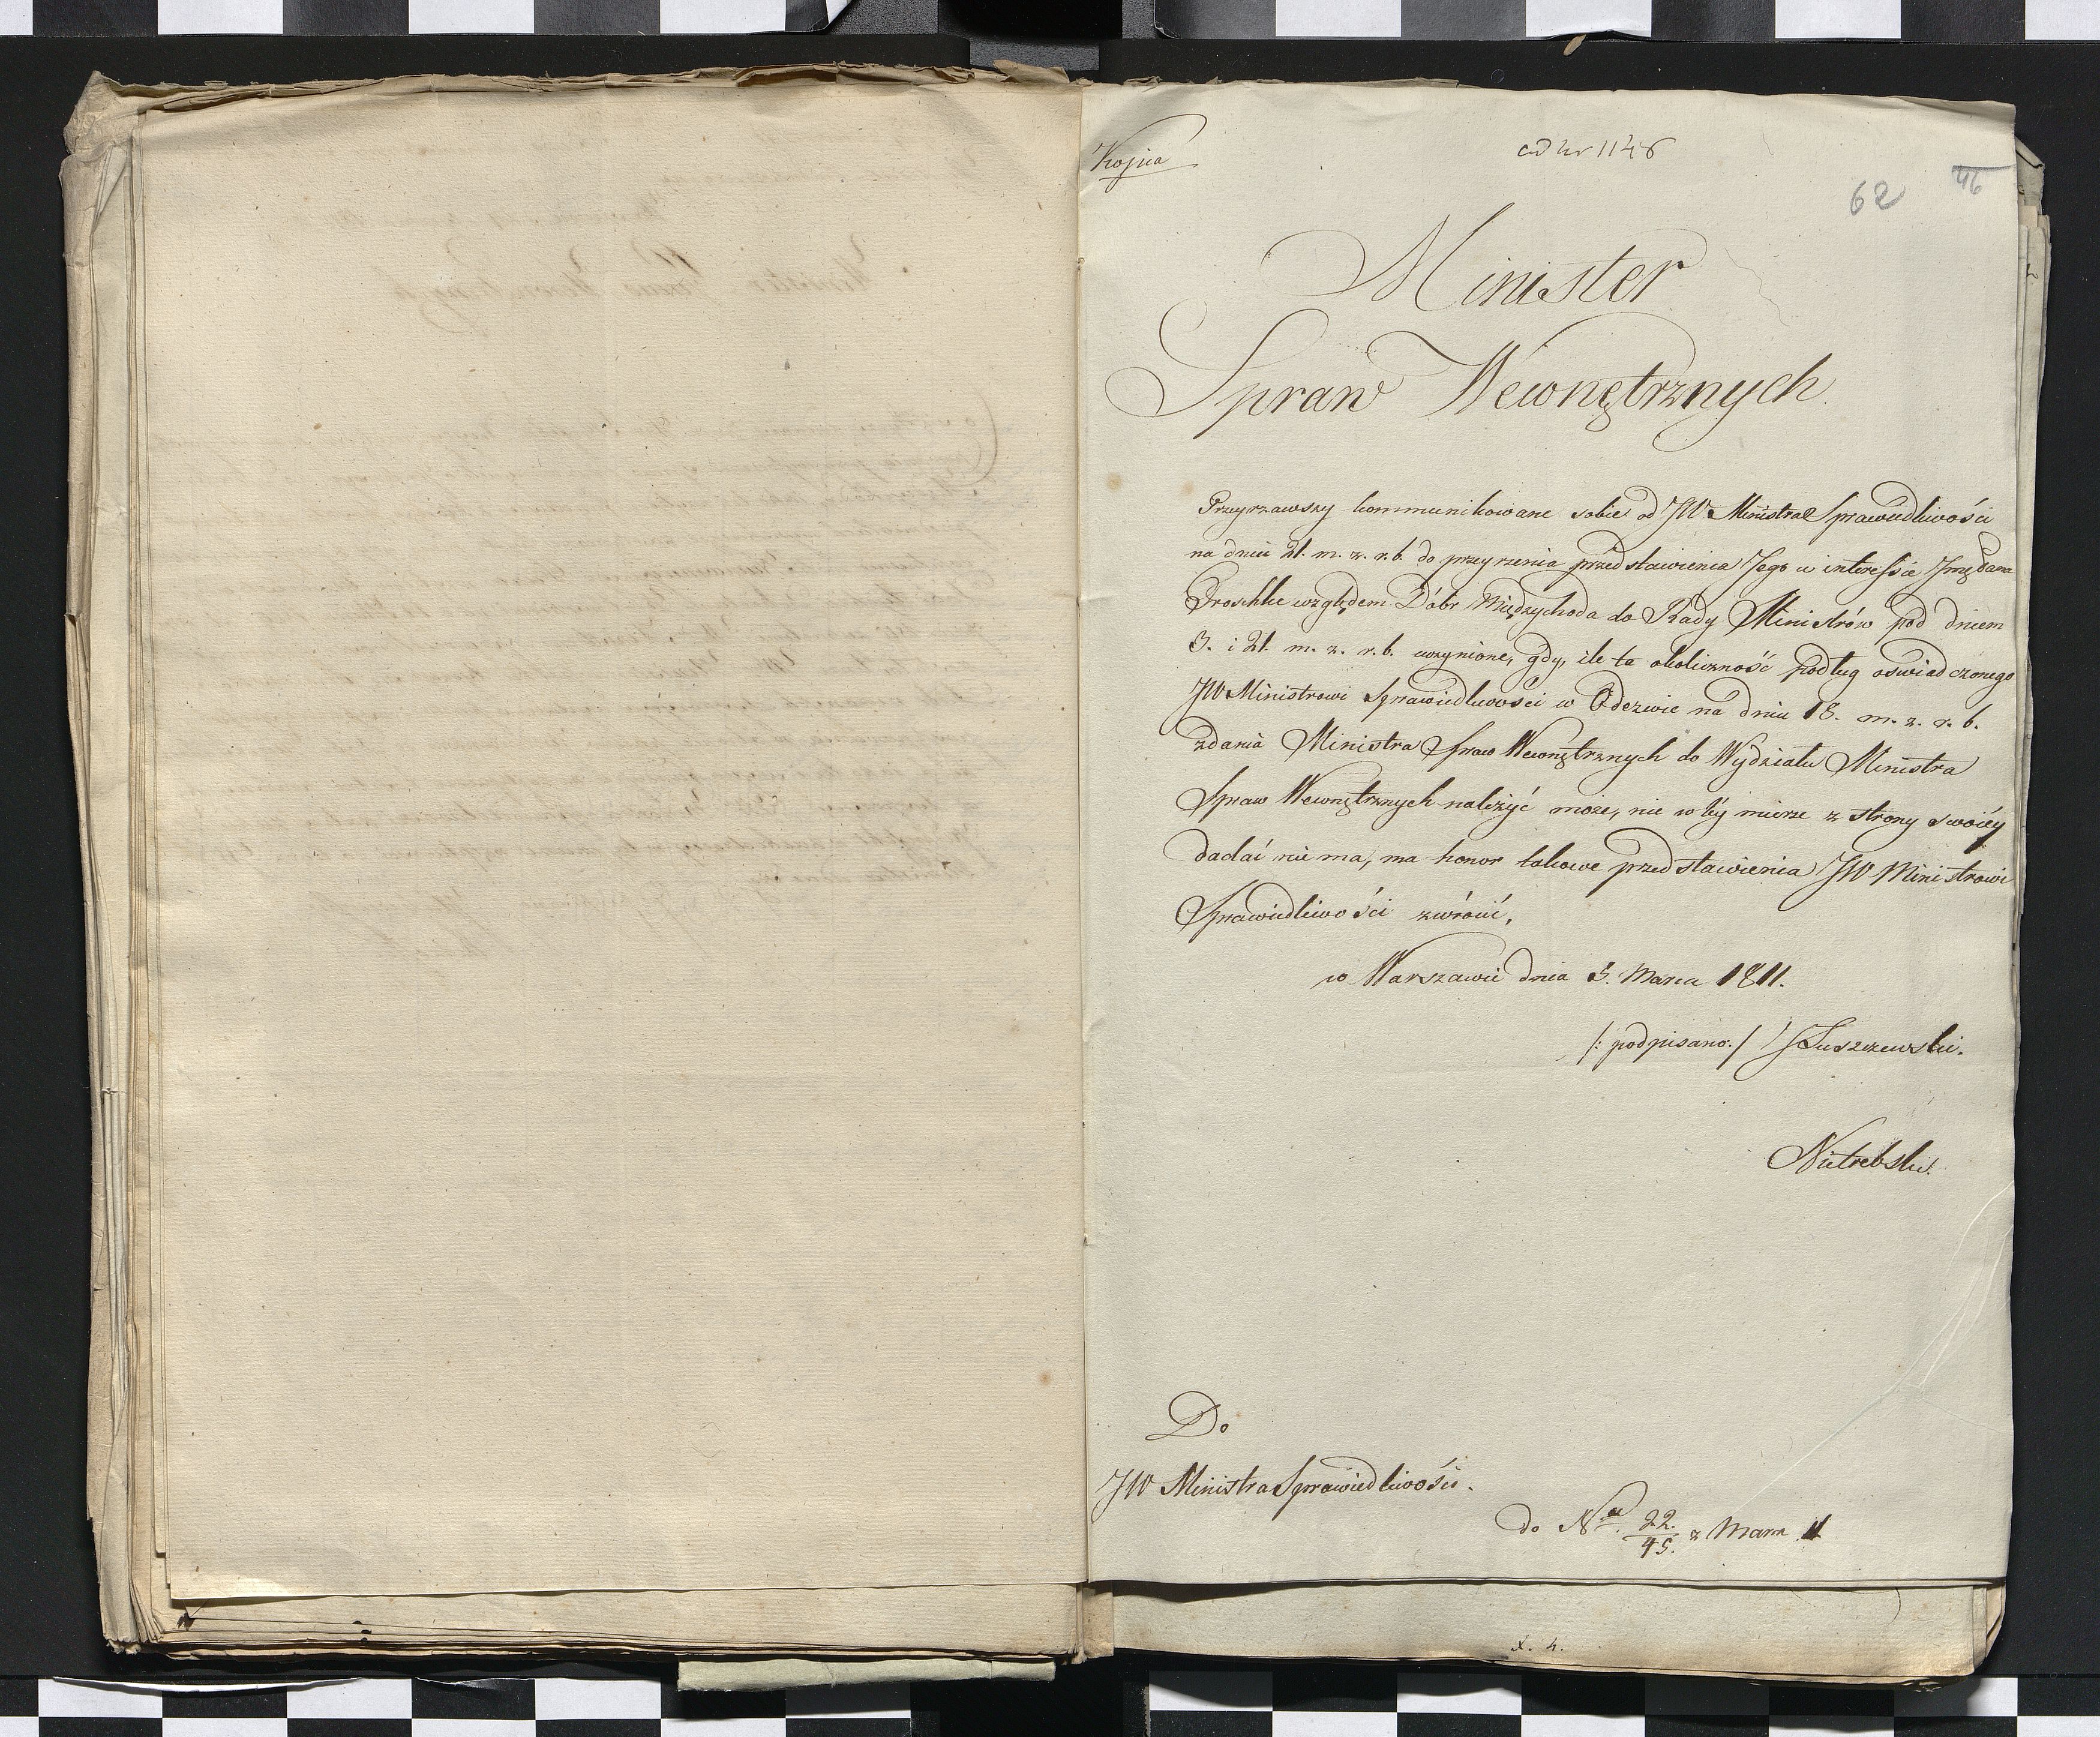 Kopia
ad nr 1148
62 46
Minister
Spraw Wewnętrznych.
Przyrzawszy kommunikowane sobie od JW Ministra Sprawiedliwości
na dniu 21. m. z. r. b. do przeyrzenia przedstawienia Jego w interessie Jmć Pana
Groschke względem Dóbr Międzychoda do Rady Ministrów pod dniem
3. i 21. m. z. r. b. uczynione, gdy, ile ta okoliczność podług oświadczonego
JW Ministrowi Sprawiedliwości w Odezwie na dniu 18. m. z. r. b.
zdania Ministra Spraw Wewnętrznych do Wydziału Ministra
Spraw Wewnętrznych należyć może, nic w téy mierze z strony swoiéy
dadać nie ma, ma honor takowe przedstawienia JW Ministrowi
Sprawiedliwości zwrócić.
w Warszawie dnia 3. Marca 1811.
/: podpisano :/ J Łuszczewski.
Do
JW Ministra Sprawiedliwości.
do N° 22./45. z Marca 11